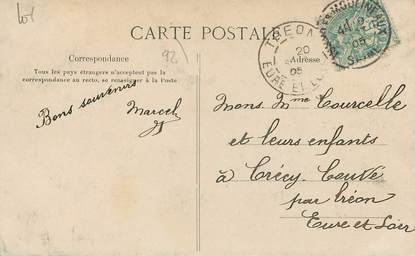 lot
CARTE POSTALE
92
Correspondance
Tous les pays étrangers n'acceptent pas la
correspondance au recto, se renseigner à la Poste
Bons souvenirs
Marcel
Adresse
20
05
EURE ET
MOULINEAUX
2
05
Mons. Mme Courcelle
et leurs enfants
à Crécy-Couvé
par Tréon
Eure et Loir